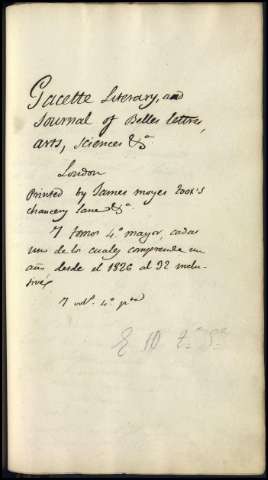 Gacette Literary, and
Journal of Belles lettres,
arts, sciences &a
London
Printed by James moyes Took's
chancery lane &a
7 tomos 4º mayor, cada
uno de los cuales comprende un
año, desde el 1826 al 32 inclu-
sive,
7 vol. 4º pta
E 10